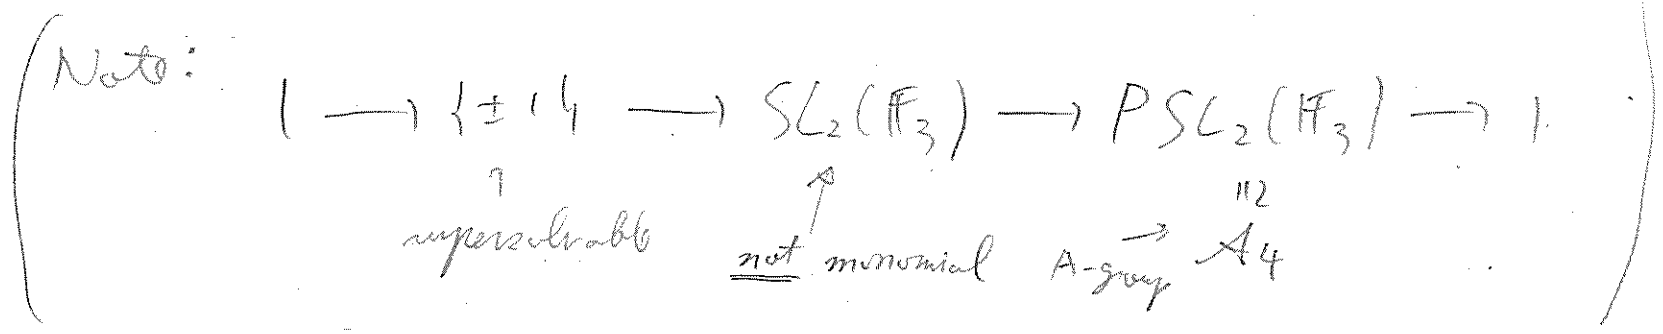 (Note:
1 → {±1} → SL₂(𝔽₃) → PSL₂(𝔽₃) → 1.
↑ ↑ ≅
supersolvable not monomial A-group → A₄ )